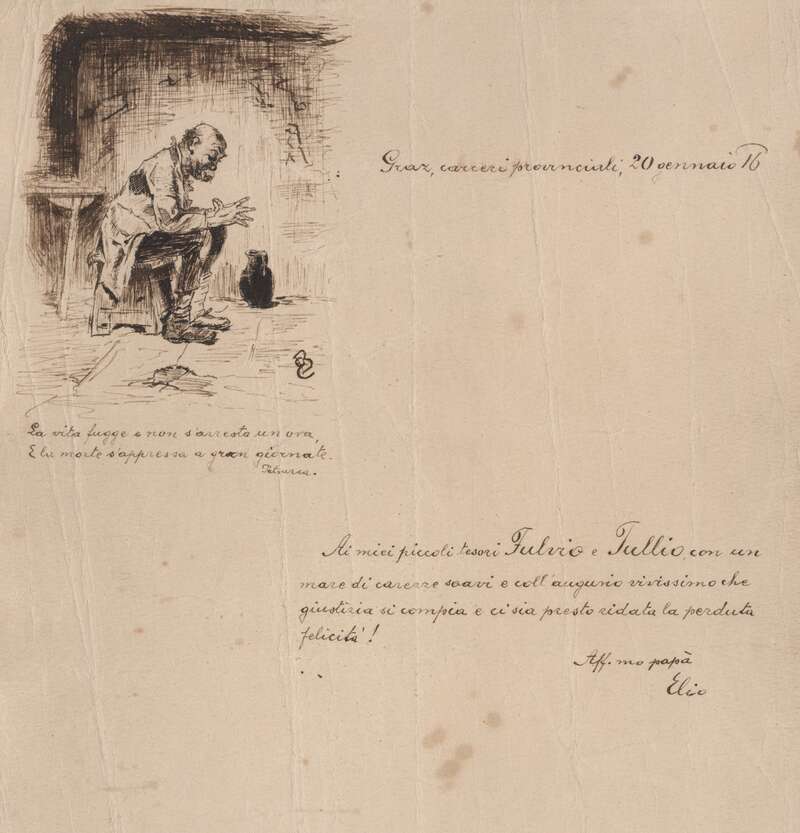 Graz, carceri provinciali, 20 gennaio 16
La vita fugge e non s'arresta un'ora,
E la morte s'appressa a gran giornate.
Petrarca.
Ai miei piccoli tesori Fulvio e Tullio, con un
mare di carezze soavi e coll'augurio vivissimo che
giustizia si compia e ci sia presto ridata la perduta
felicità!
Aff.mo papà
Elio